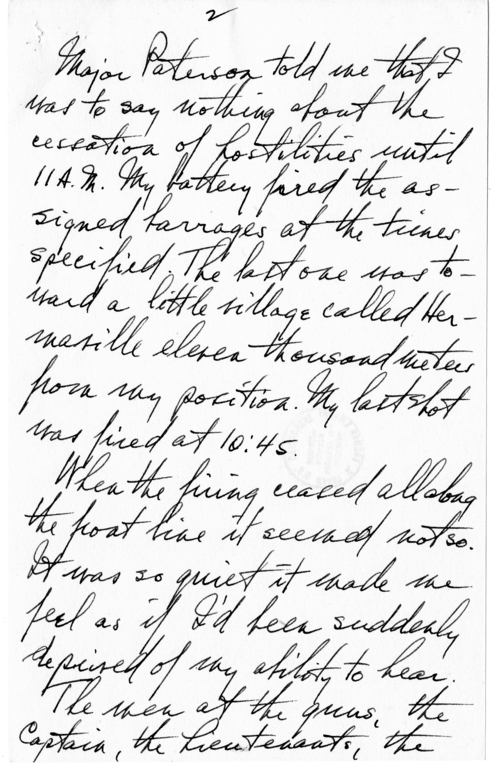 2
Major Paterson told me that I
was to say nothing about the
cessation of hostilities until
11 A.M. My battery fired the as-
signed barrages at the times
specified. The last one was to-
ward a little village called Her-
maville eleven thousand meters
from my position. My last shot
was fired at 10:45.
When the firing ceased all along
the front line it seemed not so.
It was so quiet it made me
feel as if I'd been suddenly
deprived of my ability to hear.
The men at the guns, the
Captain, the Lieutenants, the